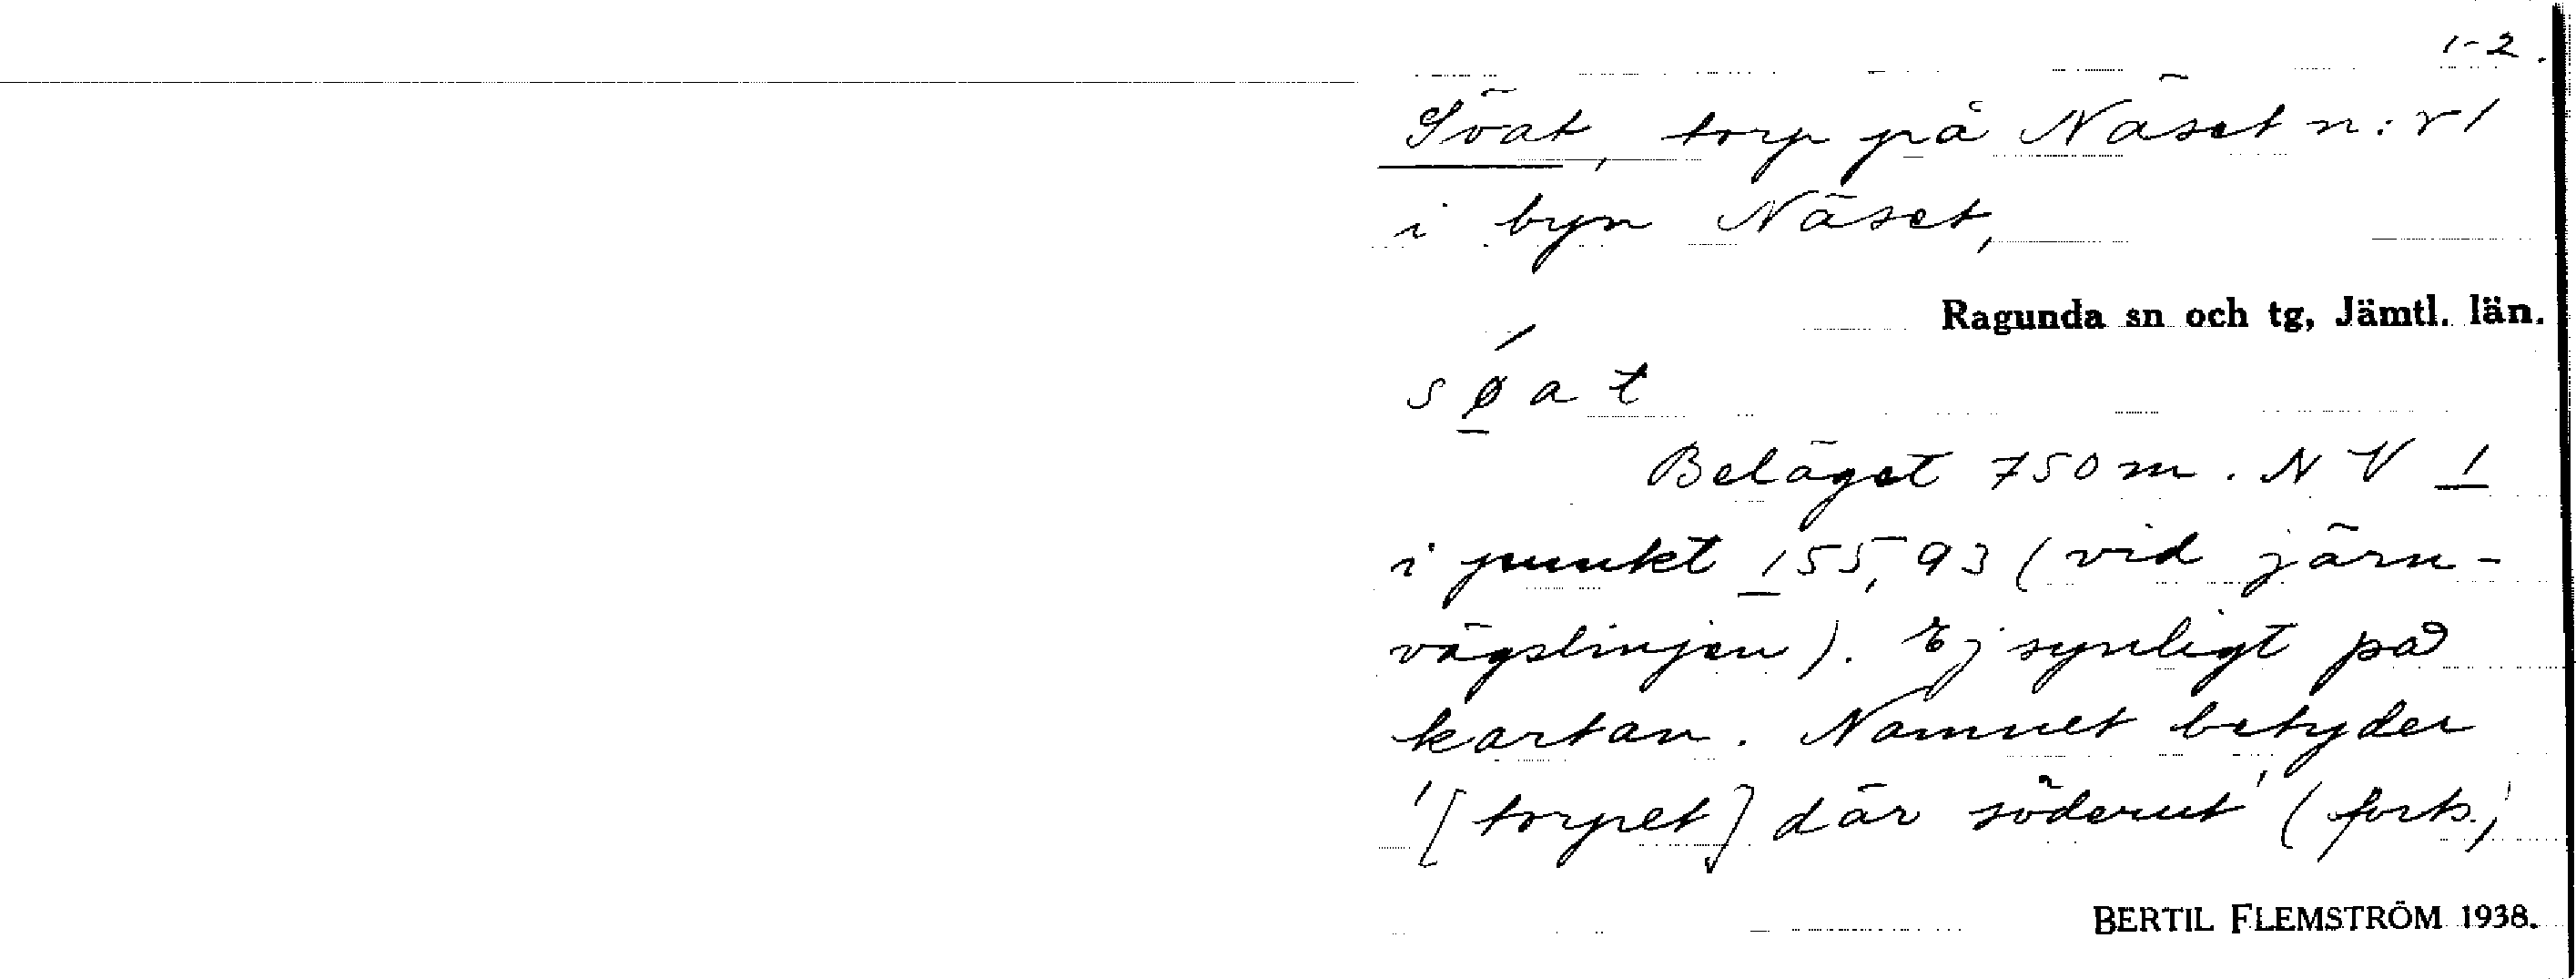 1-2.
Söat, torp på Näset n:r 1
i byn Näset,
Ragunda sn och tg, Jämtl. län.
s ǿ a t
Beläget 750 m. N V 1
i punkt 155,93 (vid järn-
vägslinjen). Ej synligt på
kartan. Namnet betyder
'[torpet] där söderut' (forts.)
BERTIL FLEMSTRÖM 1938.